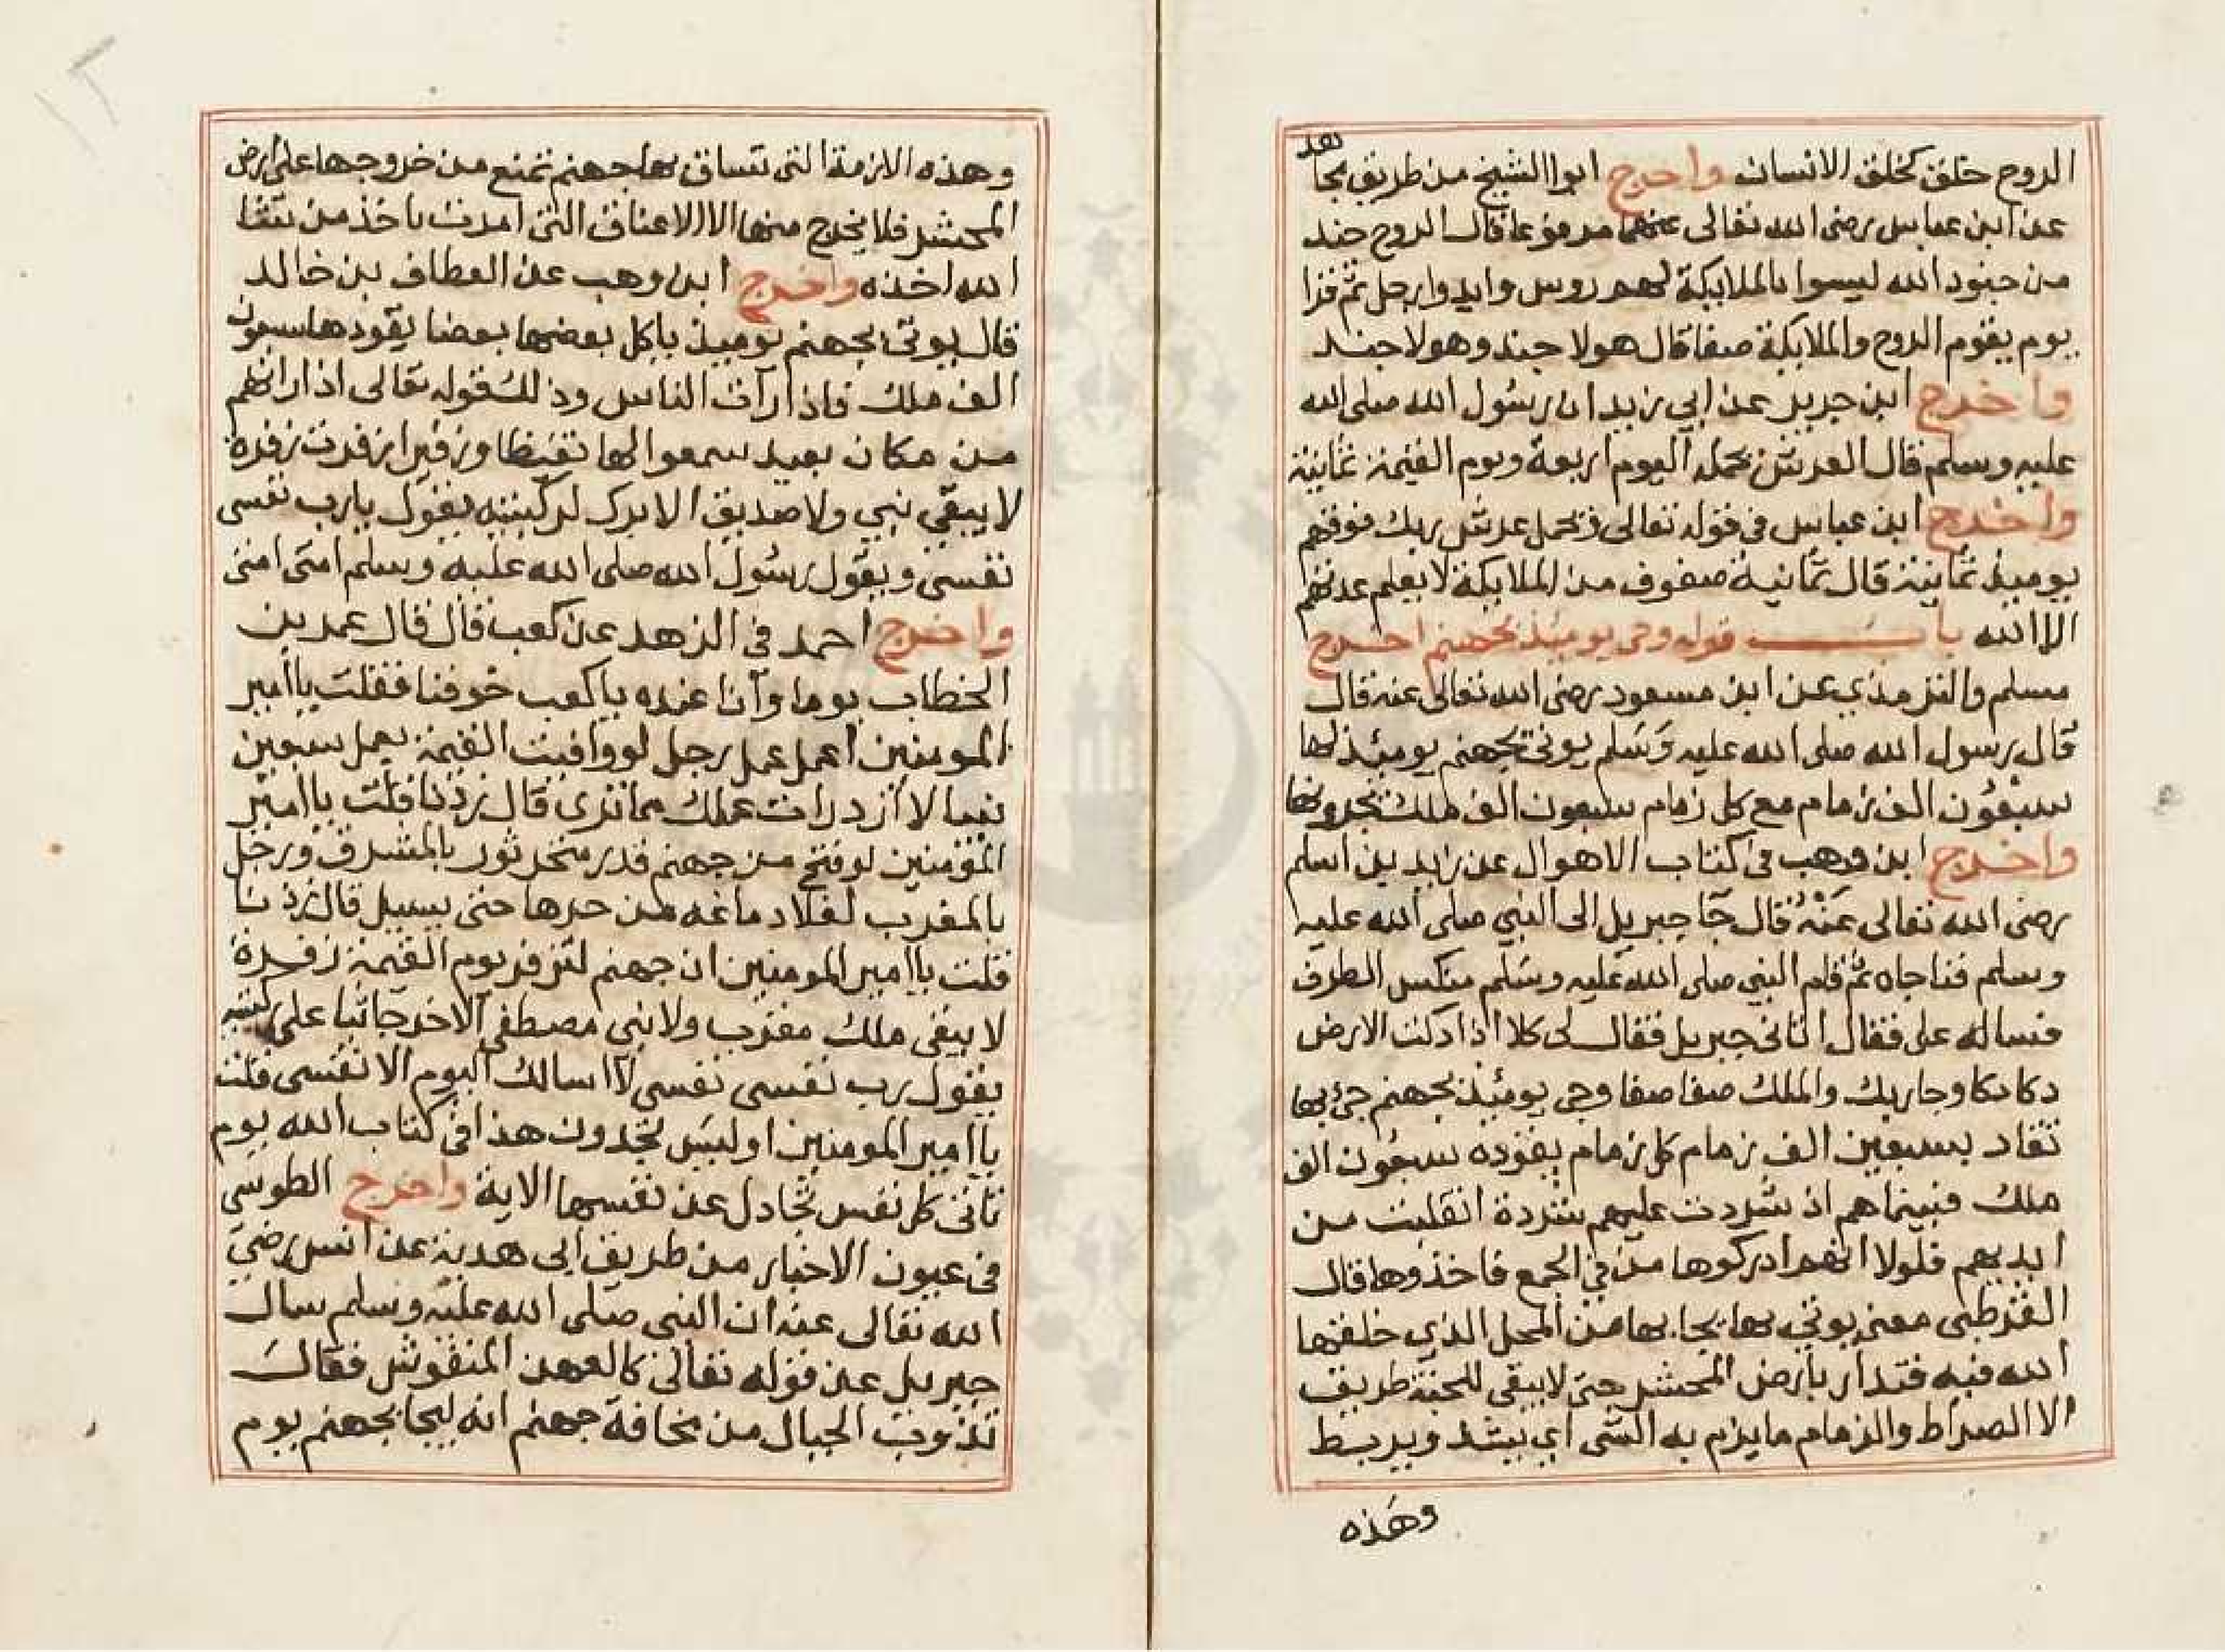 الروح خلق كخلق الانسان واخرج ابوا الشيخ من طريق مجاهد
عن ابن عباس رضى الله تعالى عنهما مرفوعا قال الروح جند
من جنود الله ليسوا بالملايكة لهم روس وايد وارجل ثم قرا
يوم يقوم الروح والملايكة صفا قال هولا جند وهولا جند
واخرج ابن جرير عن ابي زيد ان رسول الله صلى الله
عليه وسلم قال العرش تحمله اليوم اربعة ويوم القيمة ثمانية
واخرج ابن عباس في قوله تعالى وتحمل عرش ربك فوقهم
يوميذ ثمانية قال ثمانية صفوف من الملايكة لا يعلم عدتهم
الا الله باب قوله وجى يوميذ بجهنم اخرج
مسلم والترمذي عن ابن مسعود رضى الله تعالى عنه قال
قال رسول الله صلى الله عليه وسلم يوتى بجهنم يومئذ لها
سبعون الف زمام مع كل زمام سبعون الف ملك يجرونها
واخرج ابن وهب في كتاب الاهوال عن زيد بن اسلم
رضى الله تعالى عنه قال جا جبريل الى النبي صلى الله عليه
وسلم فناجاه ثم قام النبي صلى الله عليه وسلم منكس الطرف
فساله على فقال اتانى جبريل فقال لى كلا اذا دكت الارض
دكا دكا وجا ربك والملك صفا صفا وجى يومئذ بجهنم جئ بها
تقاد بسبعين الف زمام كل زمام يقوده سبعون الف
ملك فبينما هم اذ شردت عليهم شردة انفلتت من
ايديهم فلولا انهم ادركوها من في الجمع فاخذوها قال
القرطبى معنى يوتي بها يجا بها من المحل الذي خلقها
الله فيه فتدار بارض المحشر حتى لا يبقى للجنة طريق
الا الصراط والزمام ما يزم به الشى اي يشد ويربط
وهذه
وهذه الازمة التى تساق بها جهنم تمنع من خروجها على ارض
المحشر فلا يخرج منها الا الاعناق التى امرت باخذ من شا
الله اخذه واخرج ابن وهب عن العطاف بن خالد
قال يوتى بجهنم يوميذ ياكل بعضها بعضا يقودها سبعون
الف ملك فاذا رات الناس وذلك قوله تعالى اذا راتهم
من مكان بعيد سمعوا لها تغيظا وزفيرا زفرت زفرة
لا يبقى نبي ولا صديق الا برك لركبتيه يقول يارب نفسى
نفسى ويقول رسول الله صلى الله عليه وسلم امتى امتى
واخرج احمد في الزهد عن كعب قال قال عمر بن
الخطاب يوما وانا عنده يا كعب خوفنا فقلت يا امير
المومنين اعمل عمل رجل لو وافيت القيمة بعمل سبعين
نبيا لا ازدرات عملك مما ترى قال زدنا قلت يا امير
المؤمنين لو فتح من جهنم قدر منخر ثور بالمشرق ورجل
بالمغرب لغلا دماغه من حرها حتى يسيل قال زدنا
قلت يا امير المومنين ان جهنم لتزفر يوم القيمة زفرة
لا يبقى ملك مقرب ولا نبي مصطفى الا خر جاثيا على ركبتيه
يقول رب نفسى نفسى لا اسالك اليوم الا نفسى قلت
يا امير المومنين اوليس تجدون هذا في كتاب الله يوم
تاتى كل نفس تجادل عن نفسها الاية واخرج الطوسى
فى عيون الاخبار من طريق ابى هدبة عن انس رضى
الله تعالى عنه ان النبى صلى الله عليه وسلم سال
جبريل عن قوله تعالى كالعهن المنفوش فقال
تذوب الجبال من مخافة جهنم انه ليجا بجهنم يوم
١٢